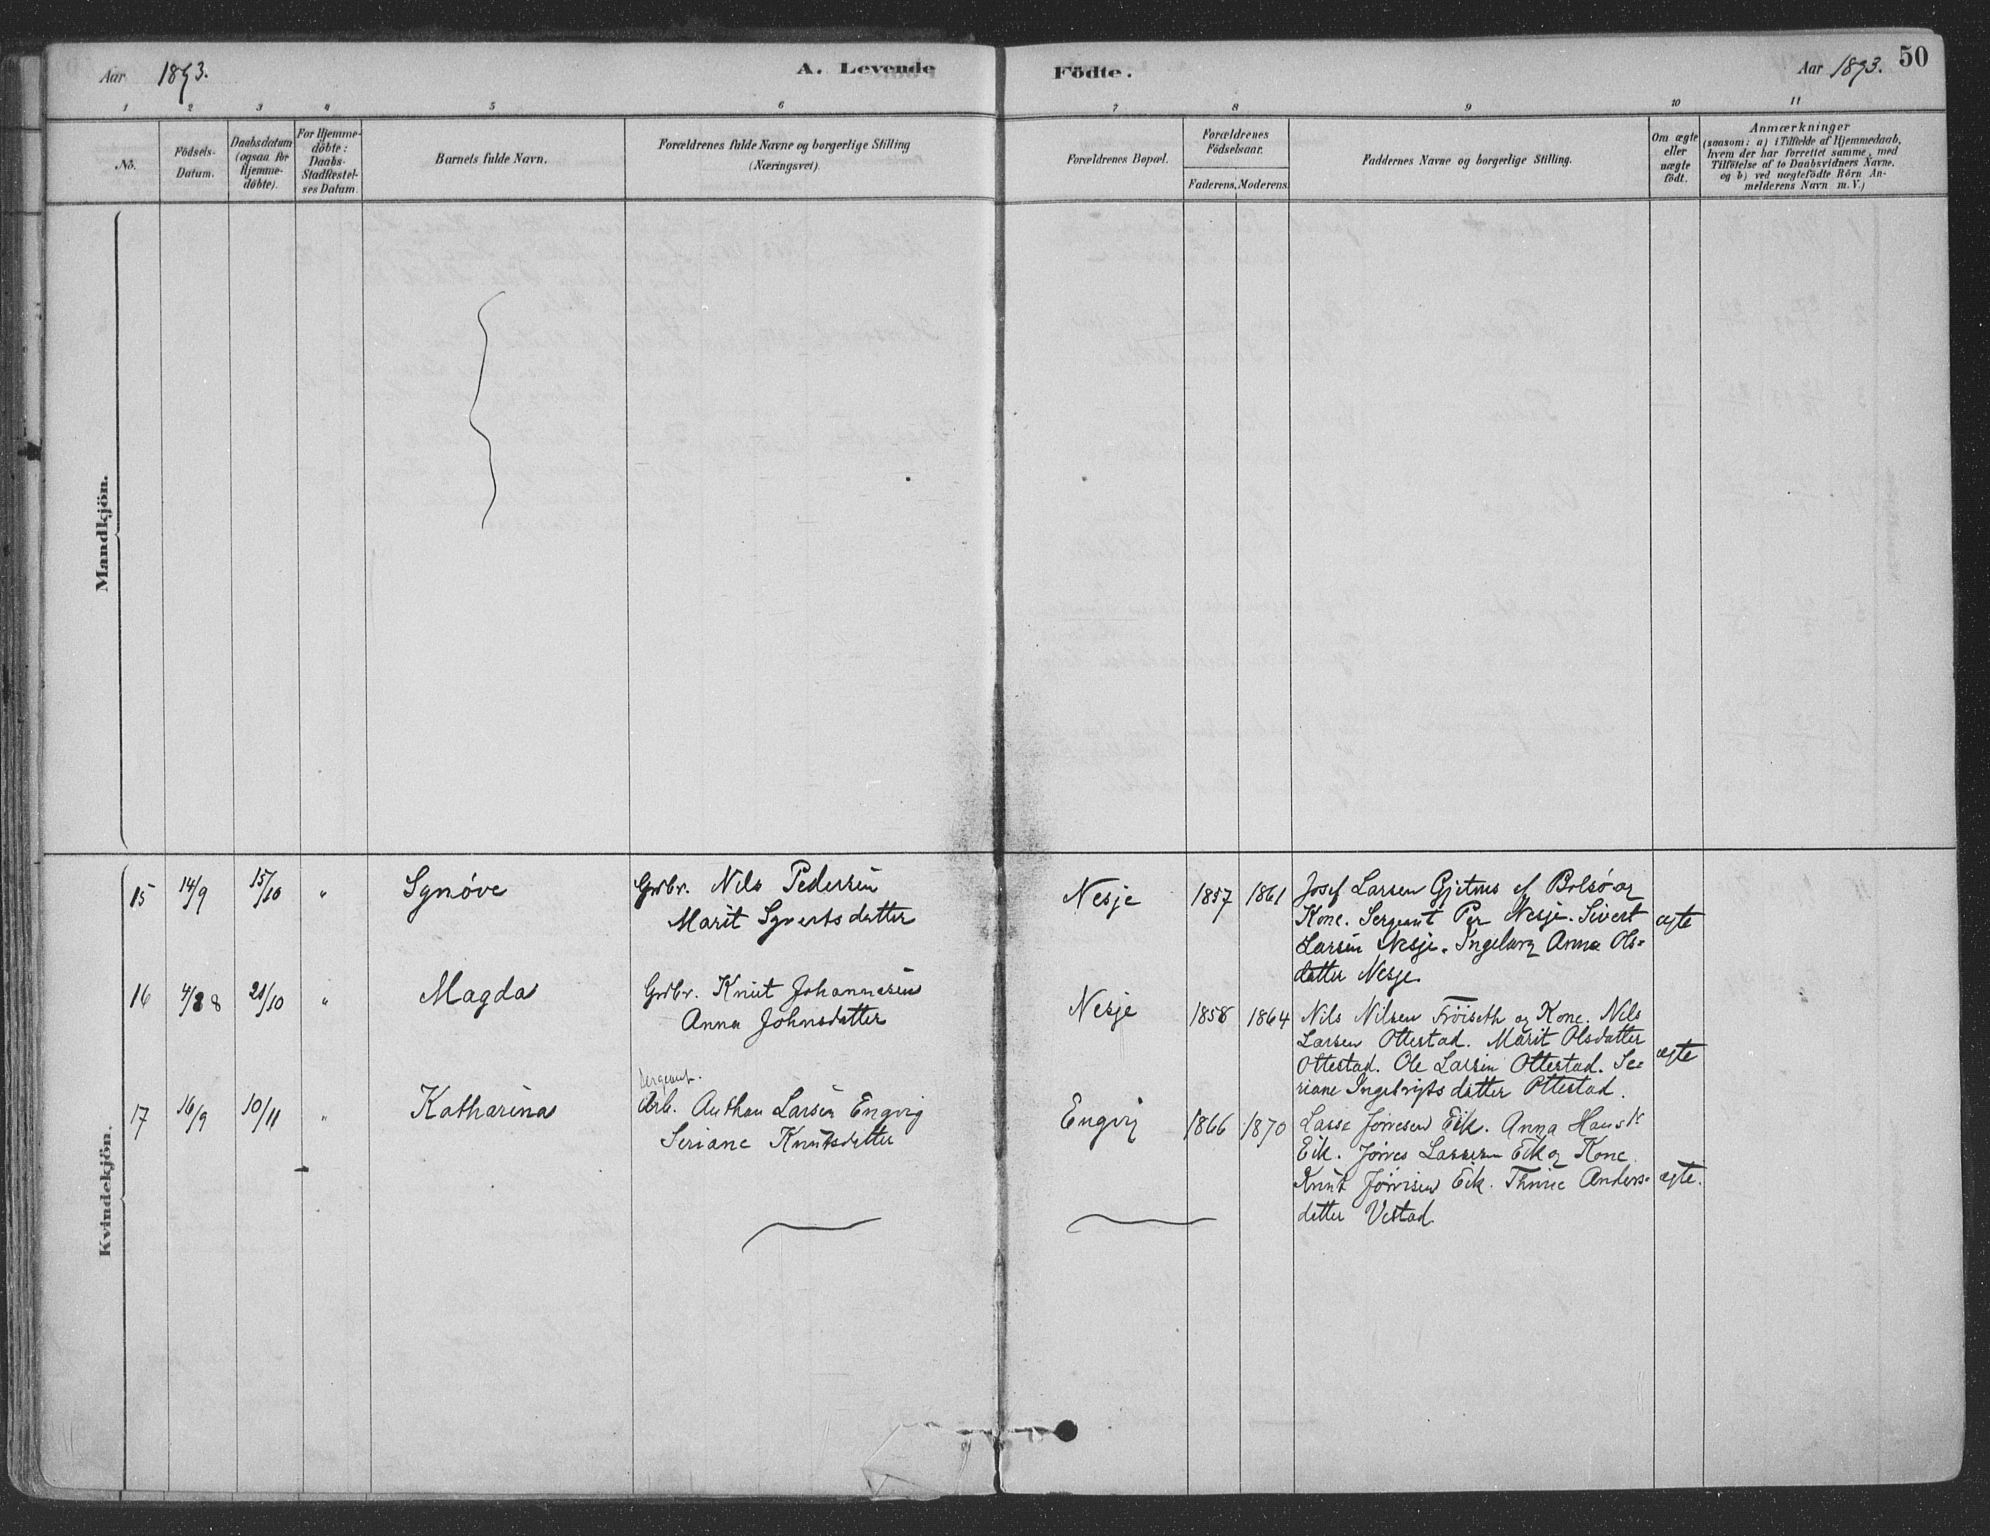 Aar 1893. A. Levende Födte. Aar 1893. 50
1 2 3 4 5 6 7 8 9 10 11
No. Födsels-Datum. Daabsdatum (ogsaa for Hjemme-döbte). For Hjemme-döbte: Daabs-Stadfæstel-ses Datum. Barnets fulde Navn. Forældrenes fulde Navne og borgerlige Stilling (Næringsvei). Forældrenes Bopæl. Forældrenes Födselsaar. Faderens. Moderens. Faddernes Navne og borgerlige Stilling. Om ægte eller uægte födt. Anmærkninger (saasom: a) i Tilfælde af Hjemmedaab, hvem der har forrettet samme, med Tilföielse af to Daabsvidners Navne, og b) ved uægtefödte Börn An-melderens Navn m. V.)
Mandkjön.
Kvindekjön.
15 14/9 15/10 " Synøve Grdbr. Nils Pedersen Nesje 1857 1861 Josef Larsen Gjetnes af Bolsö og
Marit Syvertsdatter Kone. Sergeant Per Nesje. Sivert ægte
Larsen Nesje. Ingeborg Anna Ols-
datter Nesje.
16 4/8 8 21/10 " Magda Grdbr. Knut Johannesen Nesje 1858 1864 Nils Nilsen Fröiseth og Kone. Nils
Anna Johnsdatter Larsen Ottestad. Marit Olsdatter
Ottestad. Ole Larsen Ottestad. Se- ægte
riane Ingebrigtsdatter Ottestad.
Sergeant.
17 16/9 10/11 " Katharina Arb. Anthon Larsen Engvig Engvig 1866 1870 Lasse Jörvesen Eik. Anna Hans
Seriane Knutsdatter Eik. Jörves Lassesen Eik og Kone
Knut Jörvisen Eik. Anders- ægte.
datter Vestad.